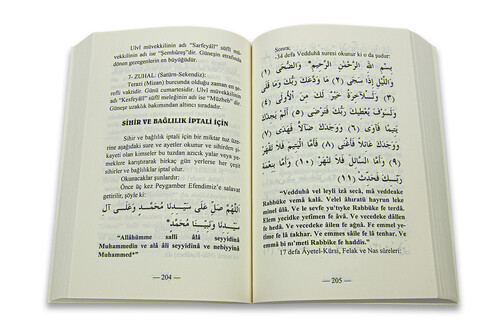 Ulvî müvekkilinin adı "Sarfeyâîl" süflî mü-
vekkilinin adı ise "Şemhûreş"dir. Güneşin etrafında
dönen gezegenlerin en büyüğüdür.
7- ZUHAL: (Satürn-Sekendiz):
Terazi (Mizan) burcunda olduğu zaman en şe-
refli vaktidir. Günü cumartesidir. Ulvî müvekkilinin
adı "Kesfeyâîl" süflî meleğinin adı ise "Müzheb" dir.
Güneşe uzaklık bakımından altıncı sıradadır.
SİHİR VE BAĞLILIK İPTALİ İÇİN
Sihir ve bağlılık iptali için bir miktar tuz üze-
rine aşağıdaki sure ve ayetler okunur ve sihirden şi-
kayeti olan kimseler bu tuzdan azıcık yalar veya ye-
meklere karıştırarak birkaç gün yerlerse her çeşit
sihirden halas olurlar.
Okunacaklar şunlardır:
Önce üç kez Peygamber Efendimiz'e salavat
getirilir, şöyle ki:
اَللّٰهُمَّ صَلِّ عَلٰى سَيِّدِنَا مُحَمَّدٍ وَعَلٰى آلِ
سَيِّدِنَا وَنَبِيِّنَا مُحَمَّدٍ"
"Allâhümme salli âlâ seyyidinâ
Muhammedin ve alâ âli seyyidinâ ve nebiyyinâ
Muhammed*"
— 204 —
Sonra;
34 defa Vedduhâ suresi okunur ki o da şudur:
بِسْمِ اللّٰهِ الرَّحْمٰنِ الرَّحِيمِ* وَالضُّحٰى (١)
وَاللَّيْلِ إِذَا سَجٰى (٢) مَا وَدَّعَكَ رَبُّكَ وَمَا قَلٰى
(٣) وَلَلْآخِرَةُ خَيْرٌ لَكَ مِنَ الْأُولٰى (٤)
وَلَسَوْفَ يُعْطِيكَ رَبُّكَ فَتَرْضٰى (٥) أَلَمْ يَجِدْكَ
يَتِيمًا فَآوٰى (٦) وَوَجَدَكَ ضَالًّا فَهَدٰى (٧)
وَوَجَدَكَ عَائِلًا فَأَغْنٰى (٨) فَأَمَّا الْيَتِيمَ فَلَا تَقْهَرْ
(٩) وَأَمَّا السَّائِلَ فَلَا تَنْهَرْ (١٠) وَأَمَّا بِنِعْمَةِ
رَبِّكَ فَحَدِّثْ (١١)
"Vedduhâ vel leyli izâ secâ, mâ veddeake
Rabbüke vemâ kalâ. Velel âhıratü hayrun leke
minel ûlâ. Ve le sevfe yu'tiyke Rabbüke fe terdâ.
Elem yecidke yetîmen fe âvâ. Ve vecedeke dâllen
fe hedâ. Ve vecedeke âilen fe ağnâ. Fe emmel
yetime fe lâ takhar. Ve emmes sâile fe lâ tenhar. Ve
emmâ bi nı'meti Rabbike fe haddis."
17 defa Âyetel-Kürsi, Felak ve Nas sûreleri:
— 205 —